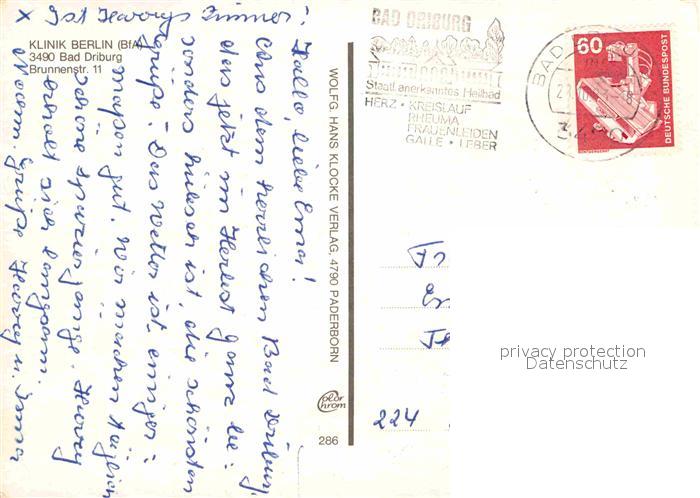 x Ist Harrys Zimmer!
KLINIK BERLIN (BfA)
3490 Bad Driburg
Brunnenstr. 11
Hallo, liebe Erna!
Aus dem herrlichen Bad Driburg,
das jetzt im Herbst ganz be=
sonders hübsch ist, die schönsten
Grüße! Das Wetter ist einiger=
maßen gut. Wir machen täglich
schöne Spaziergänge. Harry
erholt sich langsam.
Nochm. Grüße Harry u. Irma
WOLFG. HANS KLOCKE VERLAG, 4790 PADERBORN
Color
chrom
286
BAD DRIBURG
Staatl. anerkanntes Heilbad
HERZ • KREISLAUF
RHEUMA
FRAUENLEIDEN
GALLE • LEBER
BAD
60
DEUTSCHE BUNDESPOST
Fr
Er
224
privacy protection
Datenschutz